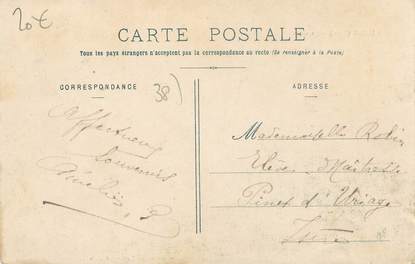 20€
CARTE POSTALE
Tous les pays étrangers n'acceptent pas la correspondance au recto (Se renseigner à la Poste)
CORRESPONDANCE
38)
ADRESSE
Affectueux
Souvenirs
Mademoiselle Robin
Elève-Maîtresse
Pinet d'Uriage
Isère